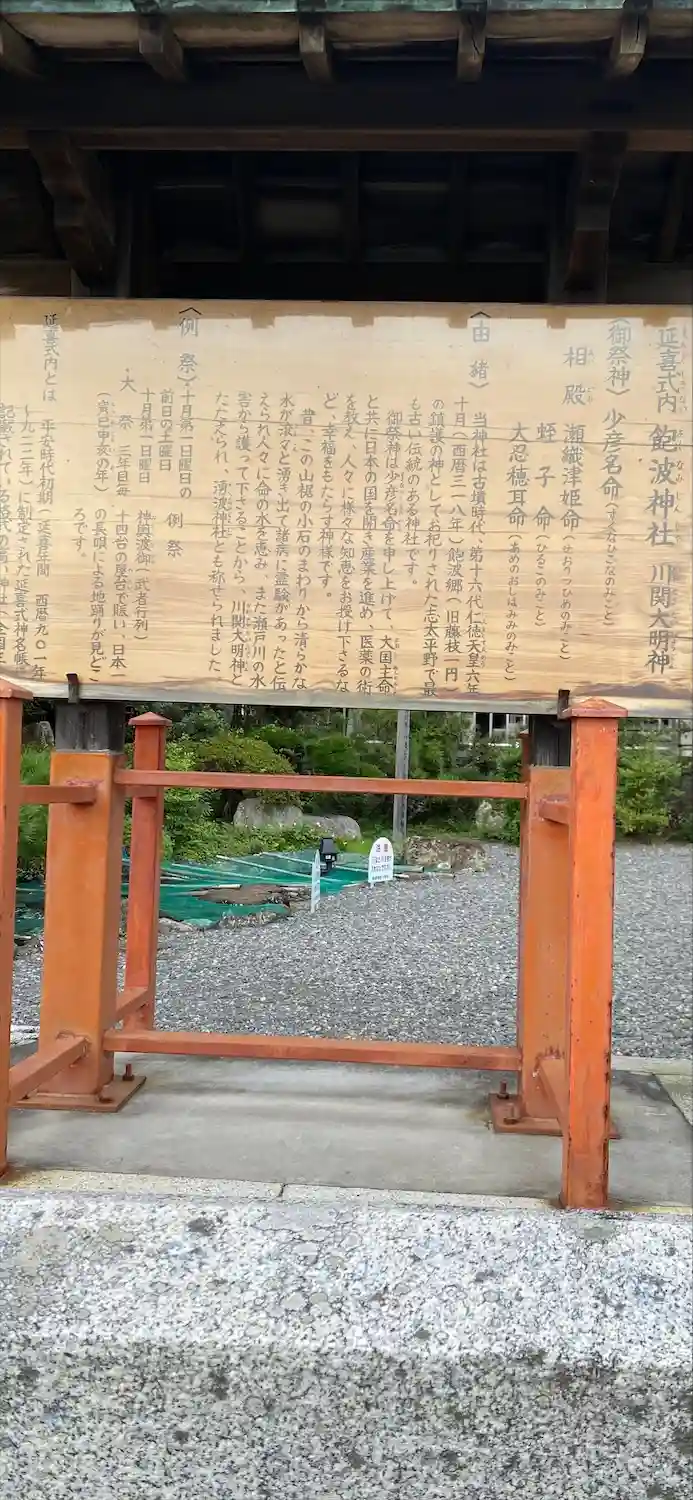 延喜式内 飽波神社 川関大明神
(御祭神) 少彦名命(すくなひこなのみこと)
相殿 瀬織津姫命(せおりつひめのみこと)
蛭子命(ひるこのみこと)
大忍穂耳命(あめのおしほみみのみこと)
(由緒)
当神社は古墳時代、第十六代仁徳天皇六年
十月(西暦三一八年)飽波郷(旧藤枝一円)
の鎮護の神としてお祀りされた志太平野で最
も古い伝統のある神社です。
御祭神は少彦名命を申し上げて、大国主命
と共に日本の国を開き産業を進め、医薬の術
を教え、人々に様々な知恵をお授け下さるな
ど、幸福をもたらす神様です。
昔、この山裾の小石のまわりから清らかな
水が滾々と湧き出て諸病に霊験があったと伝
えられ人々に命の水を恵み、また瀬戸川の水
害から護って下さることから、川関大明神と
たたえられ、湧波神社とも称せられました
(例祭)十月第一日曜日の
前日の土曜日 例祭
十月第一日曜日 神輿渡御(武者行列)
大祭 三年目毎 十四台の屋台で賑い、日本一
(寅巳申亥の年) の長唄による地踊りが見どこ
ろです。
延喜式内とは 平安時代初期(延喜年間 西暦九〇一年
〜九二二年)に制定された延喜式神名帳
記載されている格式の高い神社(全国
注意